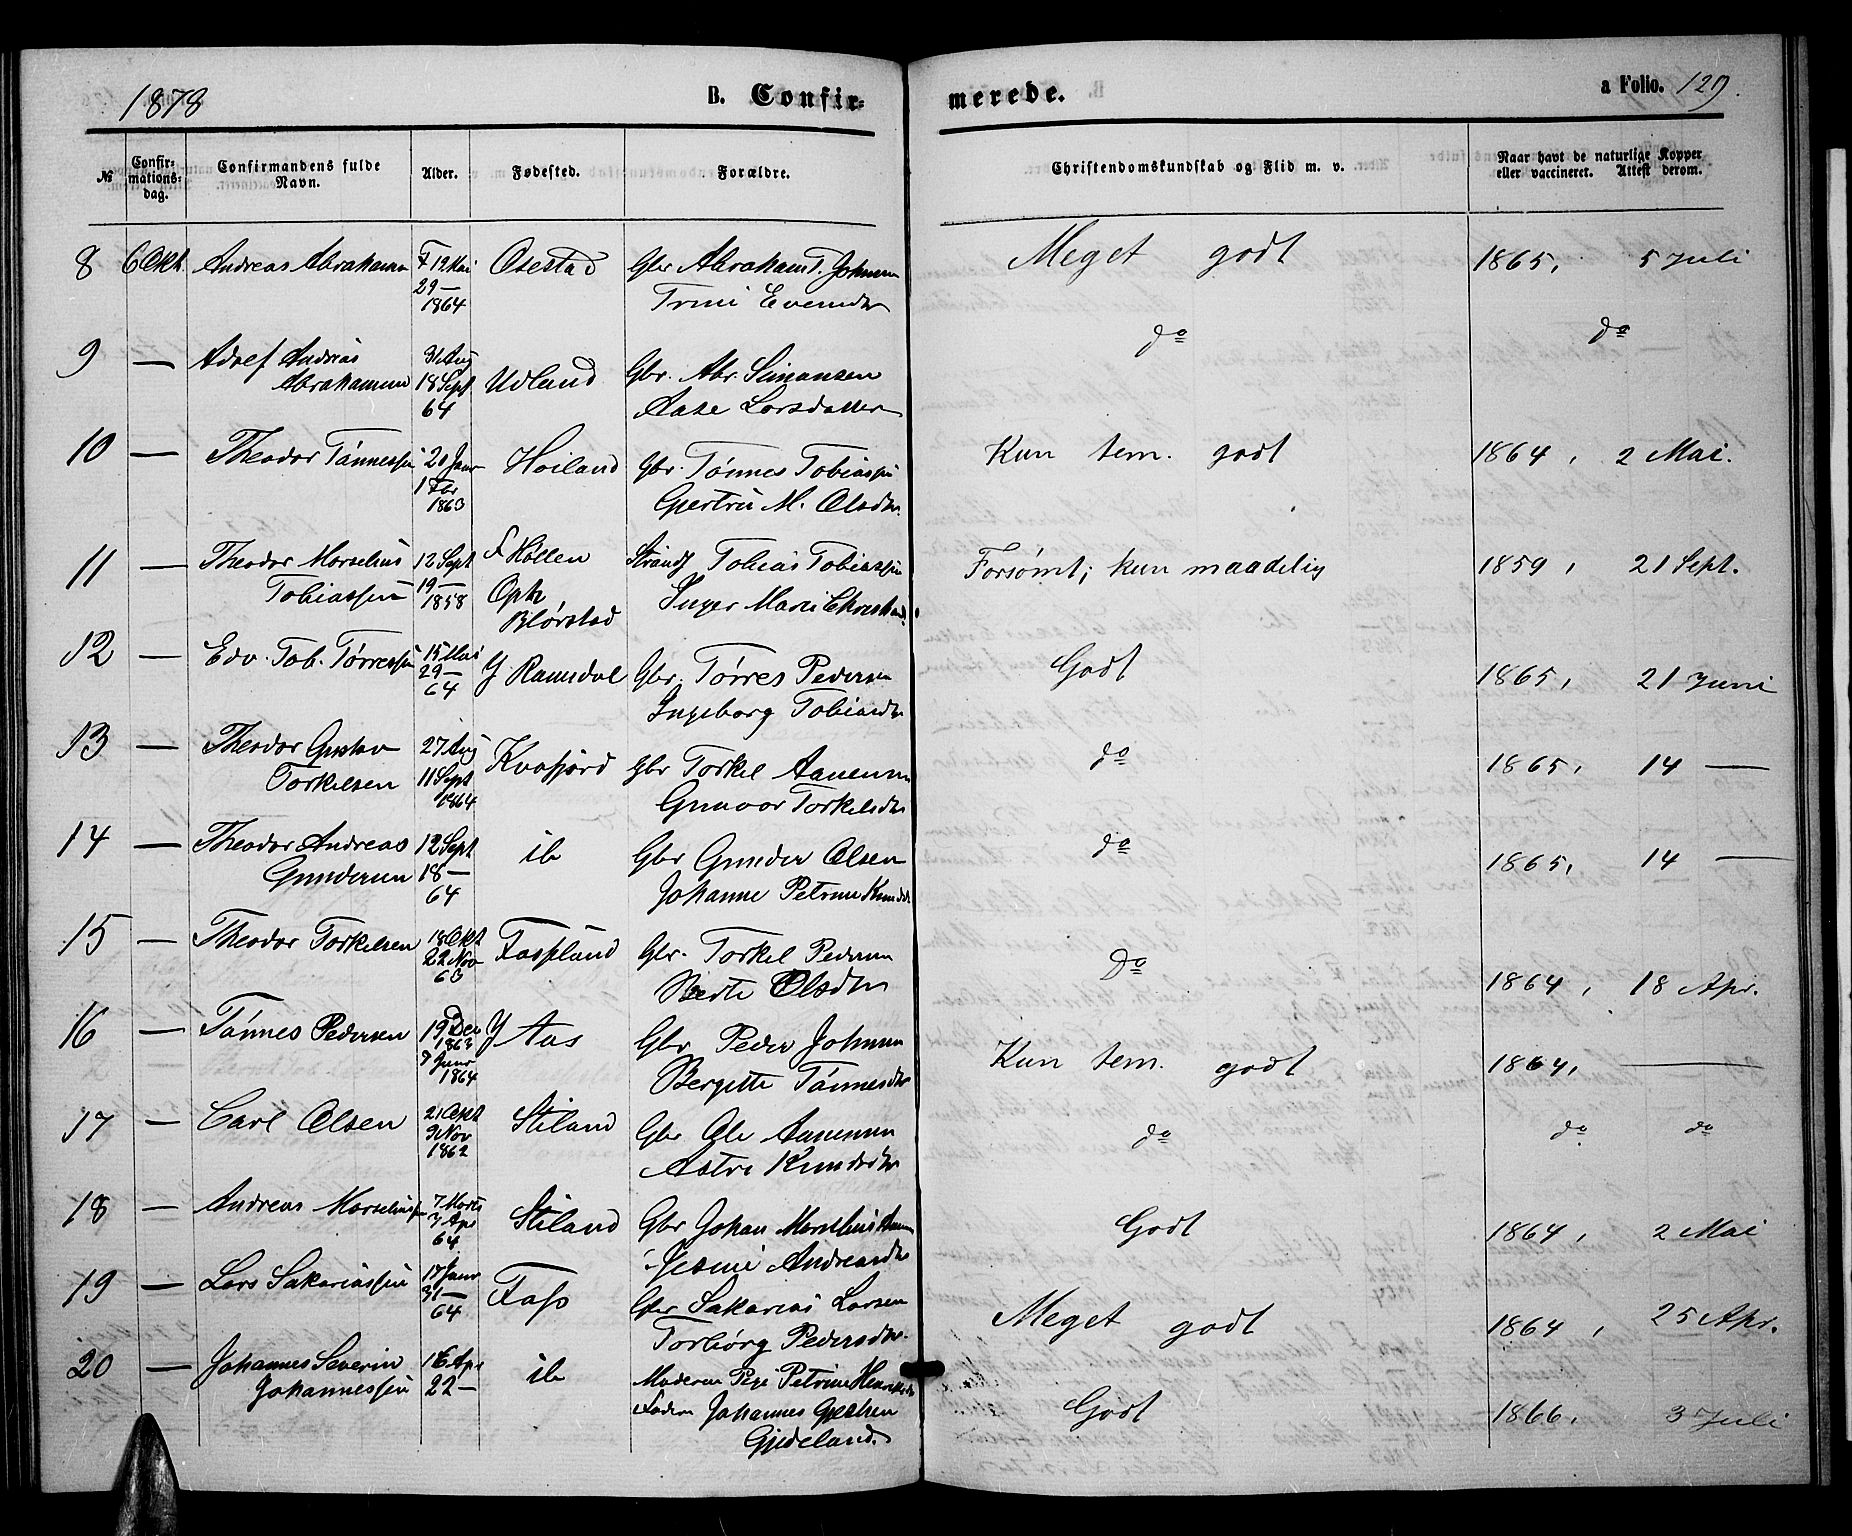 1878
B. Confir-
merede.
a Folio. 129.
№
Confir-
mations-
dag.
Confirmandens fulde
Navn.
Alder.
Fødested.
Forældre.
Christendomskundskab og Flid m. v.
Naar havt de naturlige Kopper
eller vaccineret. Attest derom.
8 6 Okt. Andreas Abrahamsen F 12 Mai Osestad Gbr Abraham T. Johnsen Meget godt 1865, 5 Juli
29 — Trine Evensdtr
1864
9 — Adolf Andreas 31 Aug Udland Gbr. Abr. Simonsen do do
Abrahamsen 18 Sept Aase Larsdatter
64
10 — Theodor Tønnessen 20 Janr Høiland Gbr. Tønnes Tobiassen Kun tem. godt 1864, 2 Mai.
1 Fbr Gjertru M. Olsdtr.
1863
11 — Theodor Marselius 12 Sept F Hollen Strandf Tobias Tobiassen Forsømt; kun maadelig 1859, 21 Sept.
Tobiassen 19 — Oph. Inger Marie
1858 Blørstad
12 — Edv. Tob. Tørressen 15 Mai Y Ramsdal Gbr. Tørres Pedersen Godt 1865, 21 Juni
29 — Ingeborg Tobiasdtr
64
13 — Theodor Gustav 27 Aug Kvafjord Gbr Torkel Aanensen do 1865, 14 —
Torkelsen 11 Sept Gunvor Torkelsdtr
1864
14 — Theodor Andreas 12 Sept ib Gbr Gunder Olsen do 1865, 14 —
Gundersen 18 — Johanne Petrine Knudsdtr
64
15 — Theodor Torkelsen 18 Okt Fasseland Gbr. Torkel Pedersen Do 1864, 18 Apr.
22 Nov Berte Olsdtr
63
16 — Tønnes Pedersen 19 Dec Y Aas Gbr Peder Johnsen Kun tem. godt 1864, —
1863 Bergitte Tønnesdtr
Janr
1864
17 — Carl Olsen 21 Okt Stiland Gbr Ole Aanensen do do do
9 Nov Astri Knudsdtr
1862
18 — Andreas Marseliussen 7 Marts Stiland Gbr Johan Marselius Godt 1864, 2 Mai
3 Apr Jesine Andreasdtr
64
19 — Lars Sakariassen 17 Janr Faso Gbr Sakarias Larsen Meget godt 1864, 25 Apr.
31 — Torborg Pedersdtr.
64
20 — Johannes Severin 16 Apr ib Moderen Pige Petrine Henriksdtr Godt 1866, 3 Juli
Johannessen 22 — Faderen Johannes
Gjedeland.